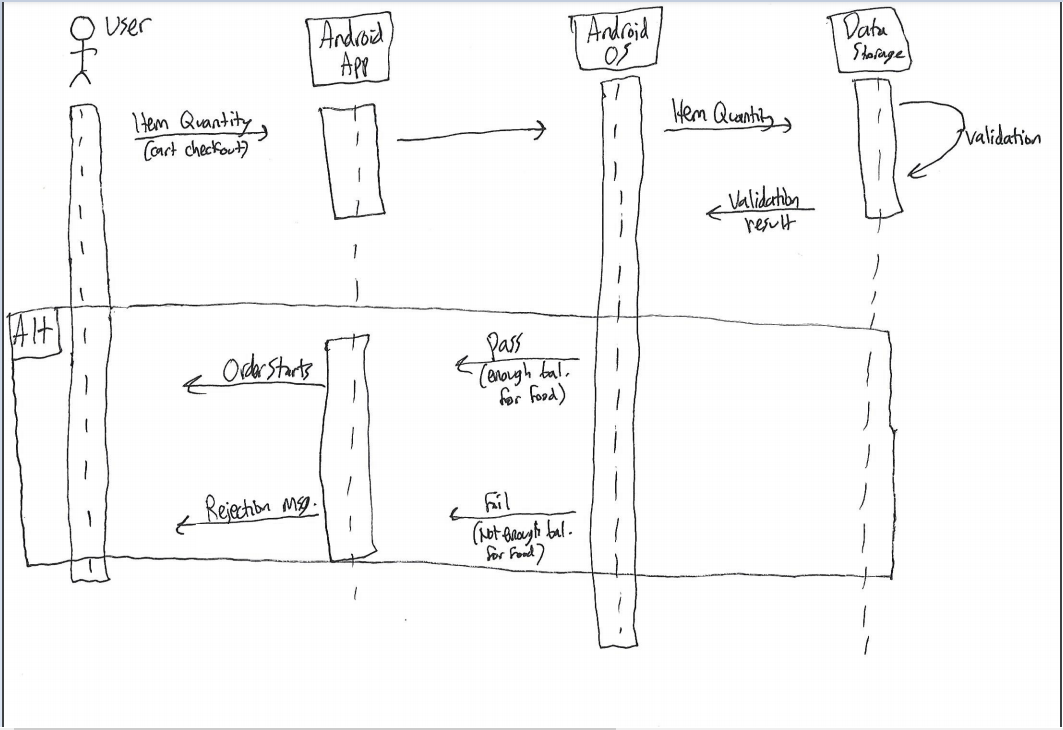 User
Android
App
Android
OS
Data
Storage
Item Quantity
(cart checkout)
Item Quantity
Validation
Validation
result
Alt
Pass
(enough bal.
for food)
Order Starts
Fail
(Not enough bal.
for food)
Rejection Msg.